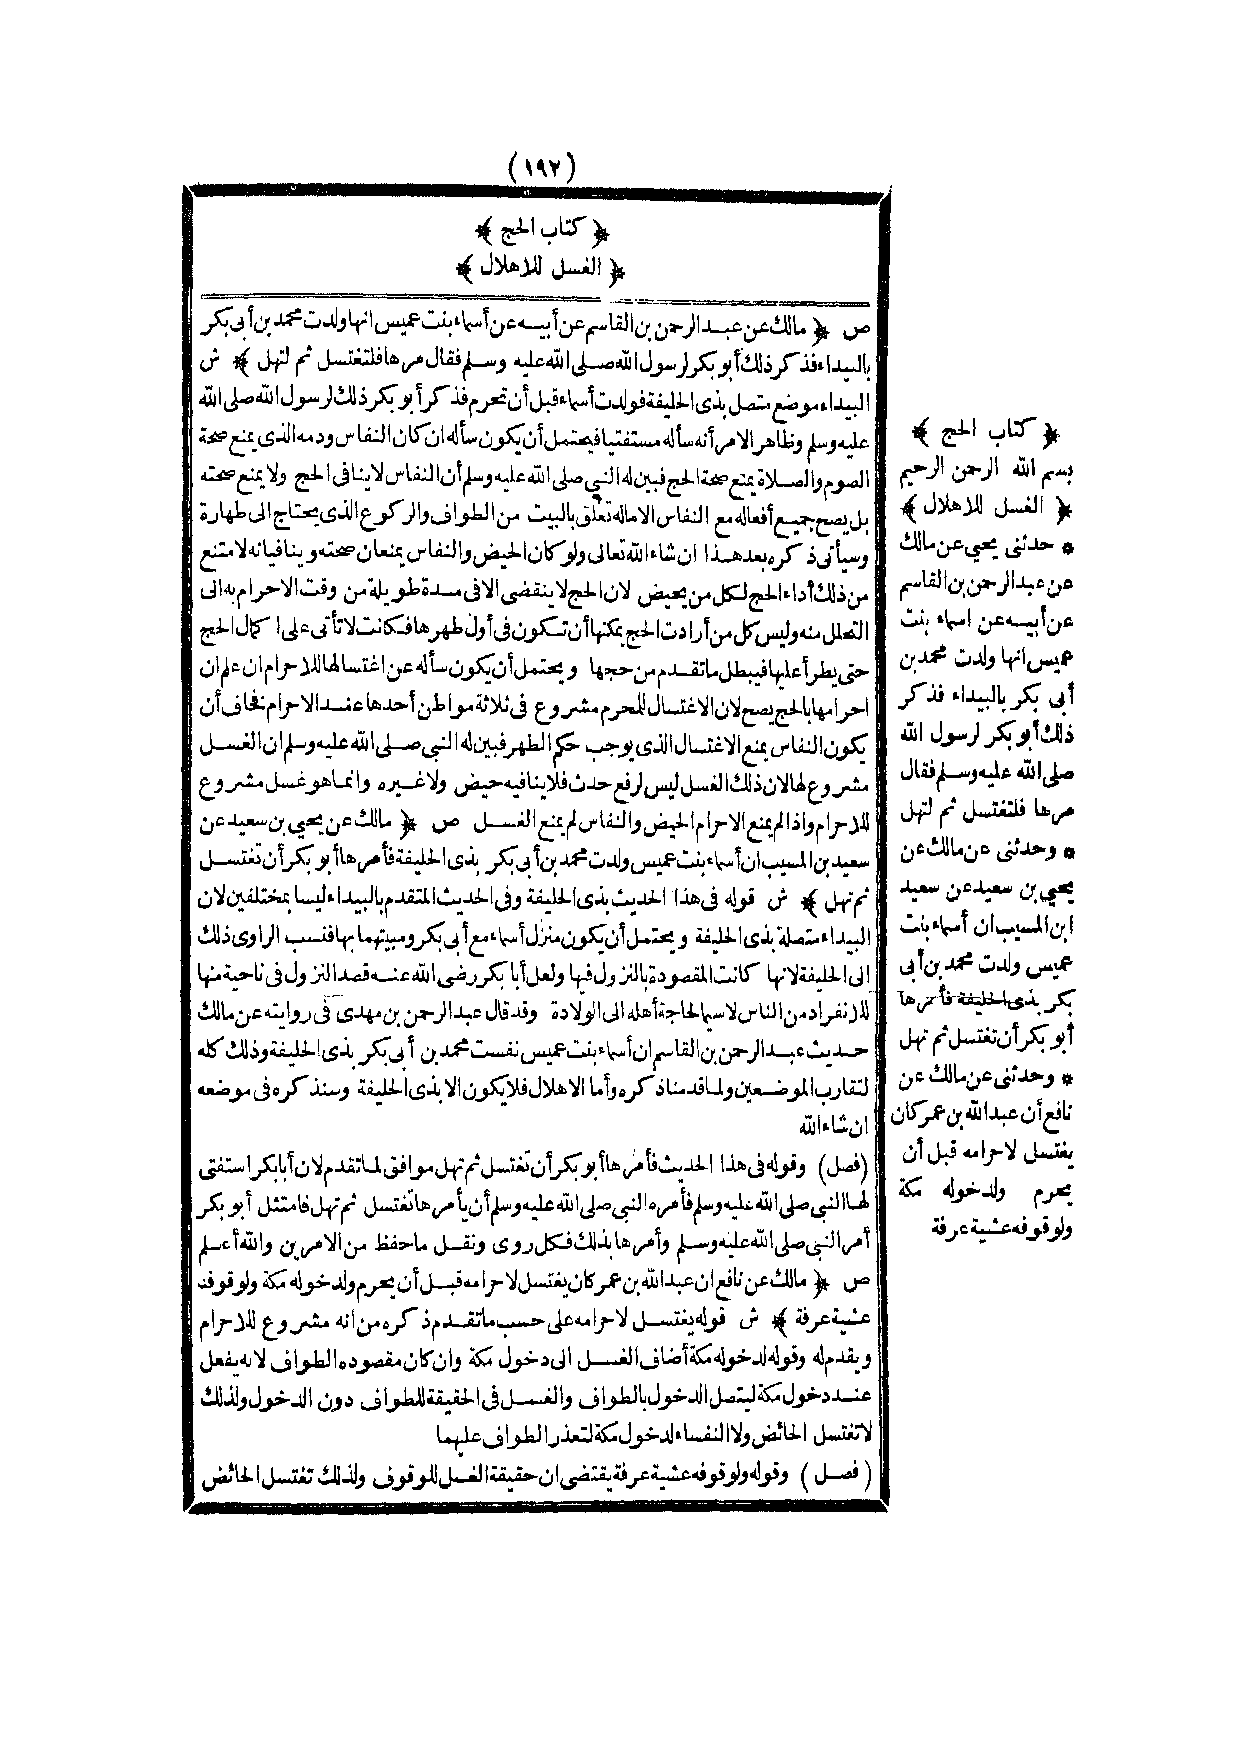 (١٩٢)
﴿ كتاب الحج ﴾
﴿ الغسل للاهلال ﴾
ص ﴿ مالك عن عبد الرحمن بن القاسم عن أبيه عن أسماء بنت عميس انها ولدت محمد بن أبى بكر
بالبيداء فذكر ذلك أبو بكر لرسول الله صلى الله عليه وسلم فقال مرها فلتغتسل ثم لتهل ﴾ ش
البيداء موضع متصل بذى الحليفة فولدت أسماء قبل أن تحرم فذكر أبو بكر ذلك لرسول الله صلى الله
عليه وسلم وظاهر الامر أنه سأله مستفتيا فيحتمل أن يكون سأله ان كان النفاس ودمه الذى يمنع صحة
الصوم والصلاة يمنع صحة الحج فبين له النبي صلى الله عليه وسلم أن النفاس لا ينافى الحج ولا يمنع صحته
بل يصح جميع أفعاله مع النفاس الا ماله تعلق بالبيت من الطواف والركوع الذى يحتاج الى طهارة
وسيأتى ذكره بعد هذا ان شاء الله تعالى ولو كان الحيض والنفاس يمنعان صحته وينافيانه لامتنع
من ذلك أداء الحج لكل من يحيض لان الحج لا ينقضى الا فى مدة طويلة من وقت الاحرام به الى
التحلل منه وليس كل من أرادت الحج يمكنها أن تكون فى أول طهرها فكانت لا تأتى على اكمال الحج
حتى يطرأ عليها فيبطل ما تقدم من حجها ويحتمل أن يكون سأله عن اغتسالها للاحرام ان علم ان
احرامها بالحج يصح لان الاغتسال للمحرم مشروع فى ثلاثة مواطن أحدها عند الاحرام فخاف أن
يكون النفاس يمنع الاغتسال الذى يوجب حكم الطهر فبين له النبى صلى الله عليه وسلم ان الغسل
مشروع لها لان ذلك الغسل ليس لرفع حدث فلا ينافيه حيض ولا غيره وانما هو غسل مشروع
للاحرام واذا لم يمنع الاحرام الحيض والنفاس لم يمنع الغسل ص ﴿ مالك عن يحيى بن سعيد عن
سعيد بن المسيب ان أسماء بنت عميس ولدت محمد بن أبى بكر بذى الحليفة فأمرها أبو بكر أن تغتسل
ثم تهل ﴾ ش قوله فى هذا الحديث بذى الحليفة وفى الحديث المتقدم بالبيداء ليسا بمختلفين لان
البيداء متصلة بذى الحليفة ويحتمل أن يكون منزل أسماء مع أبى بكر ومبيتهما بها فنسب الراوى ذلك
الى الحليفة لانها كانت المقصودة بالنزول فيها ولعل أبا بكر رضى الله عنه قصد النزول فى ناحية منها
للانفراد من الناس لا سيما لحاجة أهله الى الولادة وقد قال عبد الرحمن بن مهدى فى روايته عن مالك
حديث عبد الرحمن بن القاسم ان أسماء بنت عميس نفست محمد بن أبى بكر بذى الحليفة وذلك كله
لتقارب الموضعين ولما قدمنا ذكره وأما الاهلال فلا يكون الا بذى الحليفة وسنذكره فى موضعه
ان شاء الله
(فصل) وقوله فى هذا الحديث فأمرها أبو بكر أن تغتسل ثم تهل موافق لما تقدم لان أبا بكر استفتى
لها النبى صلى الله عليه وسلم فأمره النبى صلى الله عليه وسلم أن يأمرها تغتسل ثم تهل فامتثل أبو بكر
أمر النبى صلى الله عليه وسلم وأمرها بذلك فكل روى ونقل ما حفظ من الامرين والله أعلم
ص ﴿ مالك عن نافع ان عبد الله بن عمر كان يغتسل لاحرامه قبل أن يحرم ولدخوله مكة ولوقوفه
عشية عرفة ﴾ ش قوله يغتسل لاحرامه على حسب ما تقدم ذكره من انه مشروع للاحرام
ويقدم له وقوله لدخوله مكة أضاف الغسل الى دخول مكة وان كان مقصوده الطواف لانه يفعل
عند دخول مكة ليتصل الدخول بالطواف والغسل فى الحقيقة للطواف دون الدخول ولذلك
لا تغتسل الحائض ولا النفساء لدخول مكة لتعذر الطواف عليهما
(فصل) وقوله ولوقوفه عشية عرفة يقتضى ان حقيقة الغسل للوقوف ولذلك تغتسل الحائض
﴿ كتاب الحج ﴾
بسم الله الرحمن الرحيم
﴿ الغسل للاهلال ﴾
* حدثنى يحيى عن مالك
عن عبد الرحمن بن القاسم
عن أبيه عن اسماء بنت
عميس انها ولدت محمد بن
أبى بكر بالبيداء فذكر
ذلك أبو بكر لرسول الله
صلى الله عليه وسلم فقال
مرها فلتغتسل ثم لتهل
* وحدثنى عن مالك عن
يحيى بن سعيد عن سعيد
ابن المسيب ان أسماء بنت
عميس ولدت محمد بن أبى
بكر بذى الحليفة فأمرها
أبو بكر أن تغتسل ثم تهل
* وحدثنى عن مالك عن
نافع أن عبد الله بن عمر كان
يغتسل لاحرامه قبل أن
يحرم ولدخوله مكة
ولوقوفه عشية عرفة